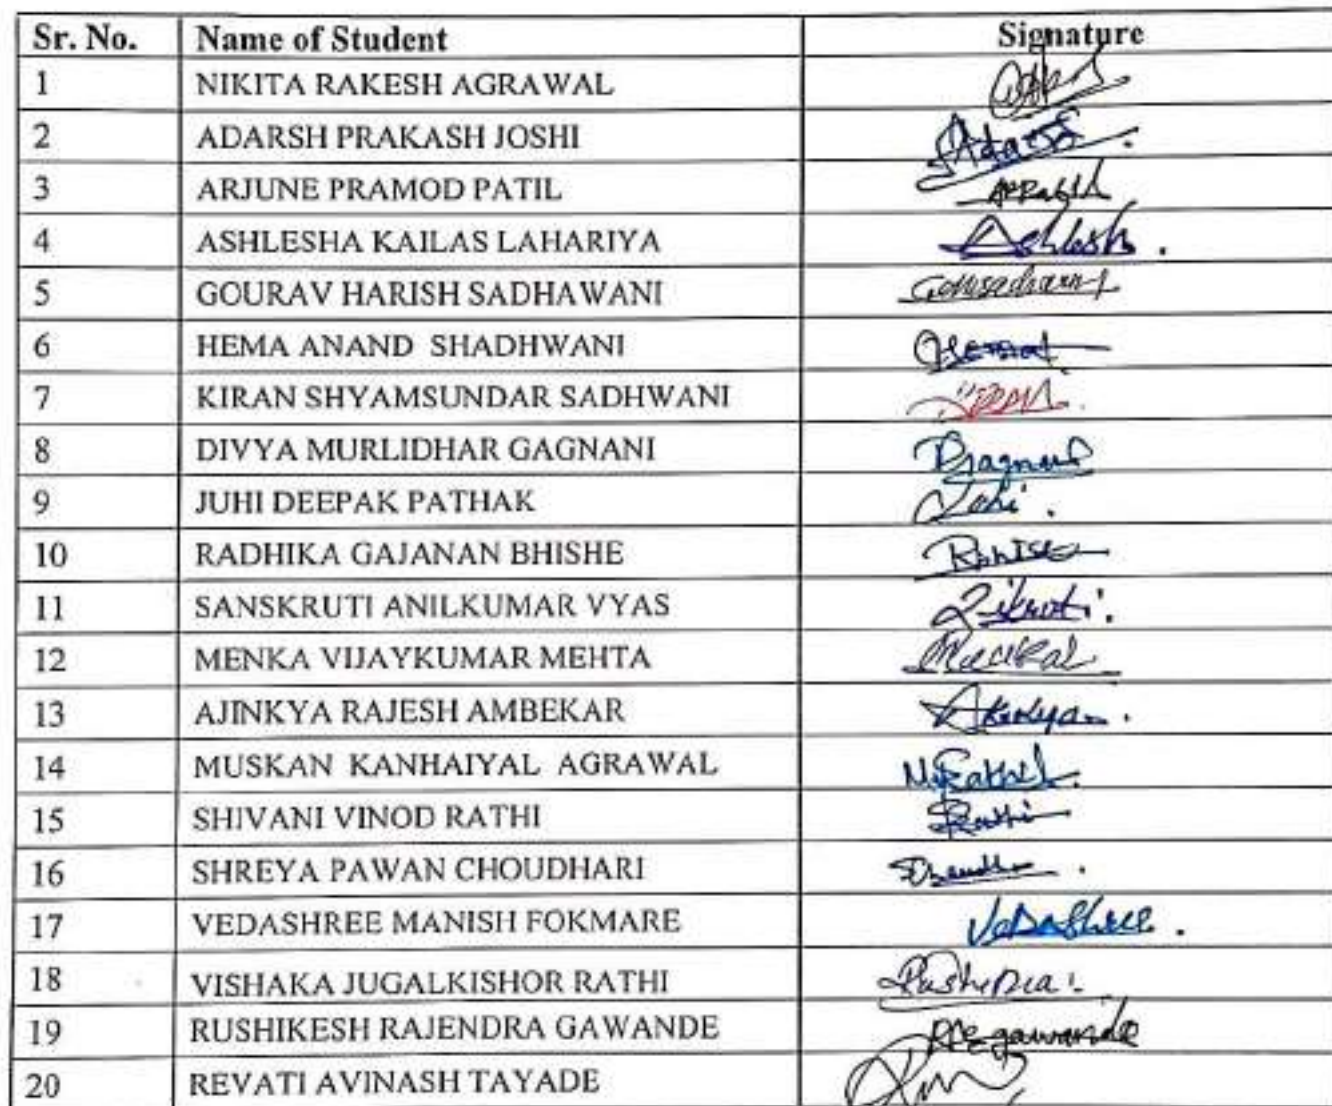 Sr. No. Name of Student Signature
1 NIKITA RAKESH AGRAWAL
2 ADARSH PRAKASH JOSHI Adarsh
3 ARJUNE PRAMOD PATIL
4 ASHLESHA KAILAS LAHARIYA Ashlesh.
5 GOURAV HARISH SADHAWANI
6 HEMA ANAND SHADHWANI
7 KIRAN SHYAMSUNDAR SADHWANI
8 DIVYA MURLIDHAR GAGNANI
9 JUHI DEEPAK PATHAK
10 RADHIKA GAJANAN BHISHE
11 SANSKRUTI ANILKUMAR VYAS
12 MENKA VIJAYKUMAR MEHTA
13 AJINKYA RAJESH AMBEKAR
14 MUSKAN KANHAIYAL AGRAWAL
15 SHIVANI VINOD RATHI Rathi
16 SHREYA PAWAN CHOUDHARI
17 VEDASHREE MANISH FOKMARE Vedashree.
18 VISHAKA JUGALKISHOR RATHI
19 RUSHIKESH RAJENDRA GAWANDE gawande
20 REVATI AVINASH TAYADE